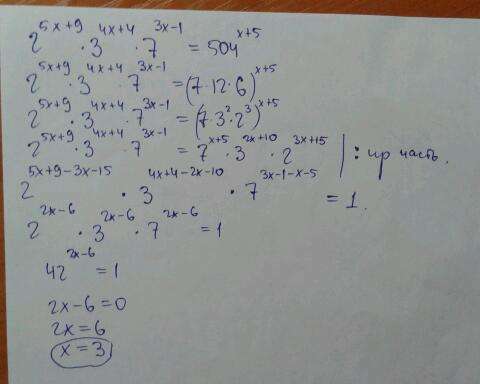 2^{5x+9} · 3^{4x+4} · 7^{3x-1} = 504^{x+5}
2^{5x+9} · 3^{4x+4} · 7^{3x-1} = (7·12·6)^{x+5}
2^{5x+9} · 3^{4x+4} · 7^{3x-1} = (7·3^2·2^3)^{x+5}
2^{5x+9} · 3^{4x+4} · 7^{3x-1} = 7^{x+5} · 3^{2x+10} · 2^{3x+15} | : пр часть.
2^{5x+9-3x-15} · 3^{4x+4-2x-10} · 7^{3x-1-x-5} = 1.
2^{2x-6} · 3^{2x-6} · 7^{2x-6} = 1
42^{2x-6} = 1
2x-6=0
2x=6
x=3